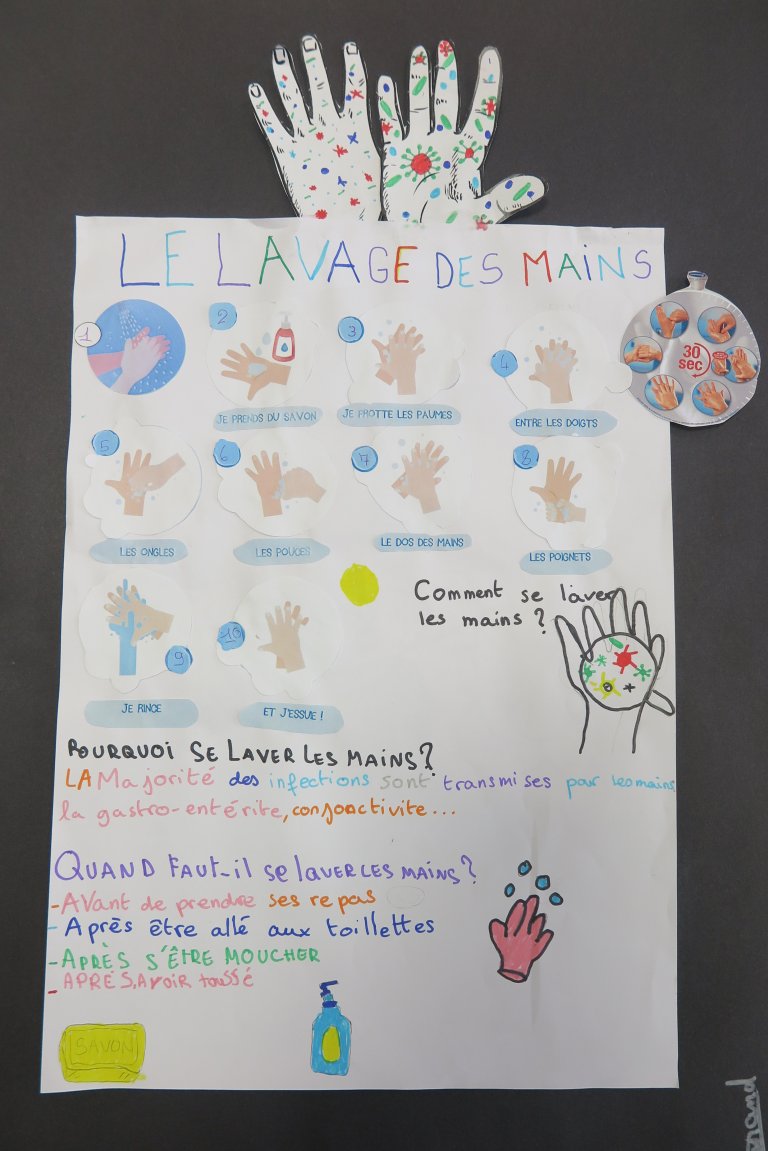 LE LAVAGE DES MAINS
1
2
3
4
30
sec
JE PRENDS DU SAVON
JE FROTTE LES PAUMES
ENTRE LES DOIGTS
5
6
7
8
LES ONGLES
LES POUCES
LE DOS DES MAINS
LES POIGNETS
Comment se laver
les mains ?
9
10
JE RINCE
ET J'ESSUIE !
POURQUOI SE LAVER LES MAINS ?
LA Majorité des infections sont transmises par les mains
la gastro-entérite, conjonctivite...
QUAND FAUT-il se laver LES MAINS ?
- Avant de prendre ses repas
- Après être allé aux toillettes
- APRÈS S'ÊTRE MOUCHER
- APRÈS Avoir toussé
SAVON